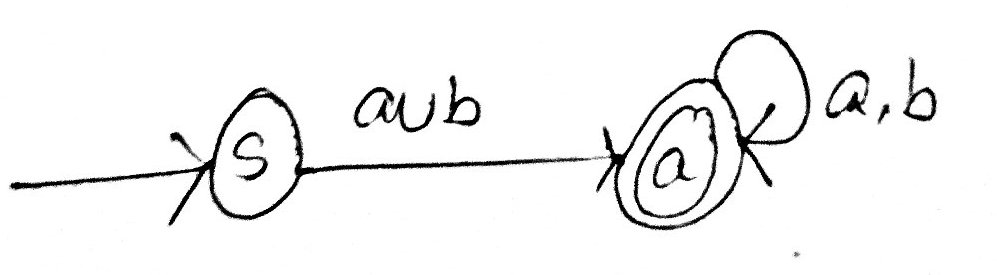 S a∪b a a,b